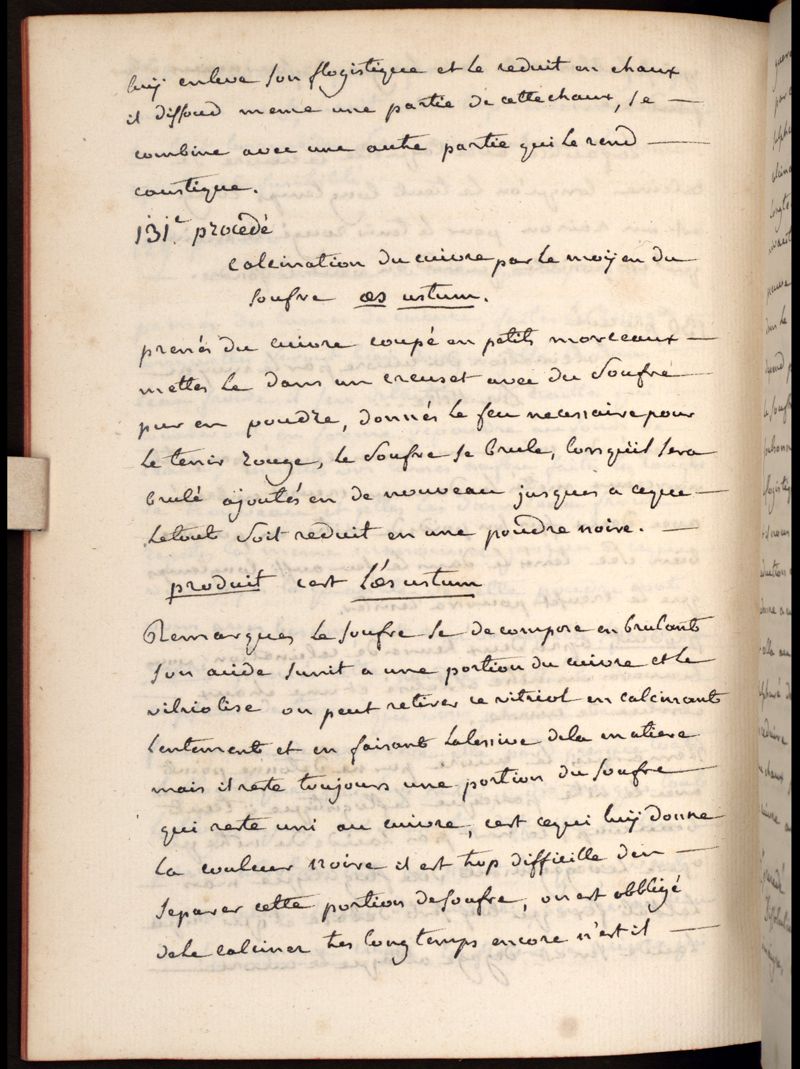 luij enleve son flogistique et le reduit en chaux
il dissoud meme une partie de cette chaux, se —
combine avec une autre partie qui le rend —
caustique.
131.e procédé
calcination du cuivre par le moijen du
soufre œs ustum.
prenés du cuivre coupé en petits morceaux —
mettes le dans un creuset avec du soufre —
pur en poudre, donnés le feu necessaire pour
le tenir rouge, le soufre se brule, lorsqu'il sera
brulé ajoutés en de nouveau jusques a ceque —
letout soit reduit en une poudre noire. —
produit cest l'œs ustum
Remarques le soufre se decompose en brulant
son acide sunit a une portion du cuivre et le
vitriolise on peut retirer ce vitriol en calcinant
lentement et en faisant lalessive dela matiere
mais il reste toujours une portion du soufre —
qui reste uni au cuivre, cest cequi luij donne
la couleur noire il est trop difficille den —
separer cette portion desoufre, on est obbligé
dele calciner tres longtemps encore n'est il —